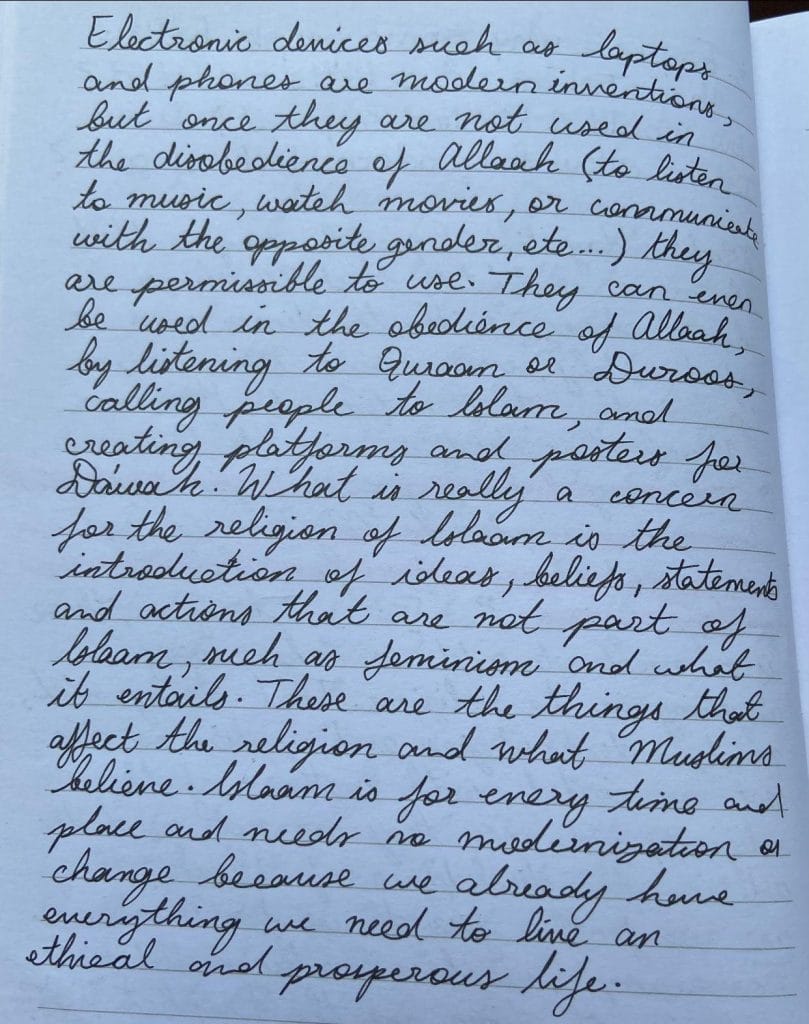 Electronic devices such as laptops
and phones are modern inventions,
but once they are not used in
the disobedience of Allaah (to listen
to music, watch movies, or communicate
with the opposite gender, etc...) they
are permissible to use. They can even
be used in the obedience of Allaah,
by listening to Quraan or Duroos,
calling people to Islam, and
creating platforms and posters for
Da'wah. What is really a concern
for the religion of Islaam is the
introduction of ideas, beliefs, statements
and actions that are not part of
Islaam, such as feminism and what
it entails. These are the things that
affect the religion and what Muslims
believe. Islaam is for every time and
place and needs no modernization or
change because we already have
everything we need to live an
ethical and prosperous life.